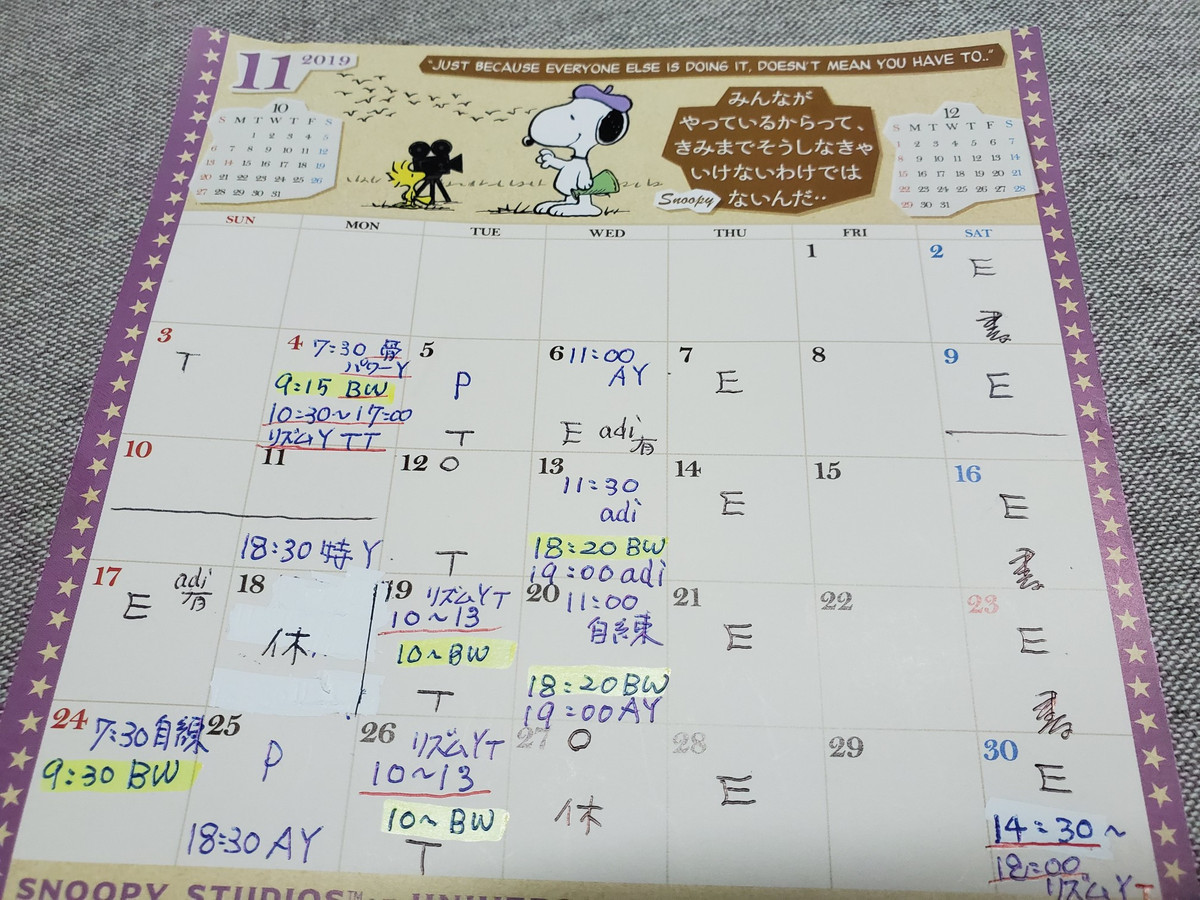 11 2019
"JUST BECAUSE EVERYONE ELSE IS DOING IT, DOESN'T MEAN YOU HAVE TO.."
みんなが
やっているからって、
きみまでそうしなきゃ
いけないわけでは
ないんだ‥
Snoopy
10
S M T W T F S
1 2 3 4 5
6 7 8 9 10 11 12
13 14 15 16 17 18 19
20 21 22 23 24 25 26
27 28 29 30 31
12
S M T W T F S
1 2 3 4 5 6 7
8 9 10 11 12 13 14
15 16 17 18 19 20 21
22 23 24 25 26 27 28
29 30 31
SUN MON TUE WED THU FRI SAT
1
2 E
3 T
4 7:30 骨
パワーY
9:15 BW
10:30～17:00
リズムY TT
5
P
T
6 11:00
AY
E adi有
7
E
8
9
E
10
11
18:30 特Y
12 O
T
13
11:30
adi
18:20 BW
19:00 adi
14
E
15
16
E
17 adi有
E
18
休
19 リズムYT
10～13
10～BW
T
20 11:00
自練
18:20 BW
19:00 AY
21
E
22
23
E
24 7:30自練
9:30 BW
25
P
18:30 AY
26 リズムYT
10～13
10～BW
T
27 O
休
28
E
29
30
E
14:30～
18:00
リズムYT
SNOOPY STUDIOS™